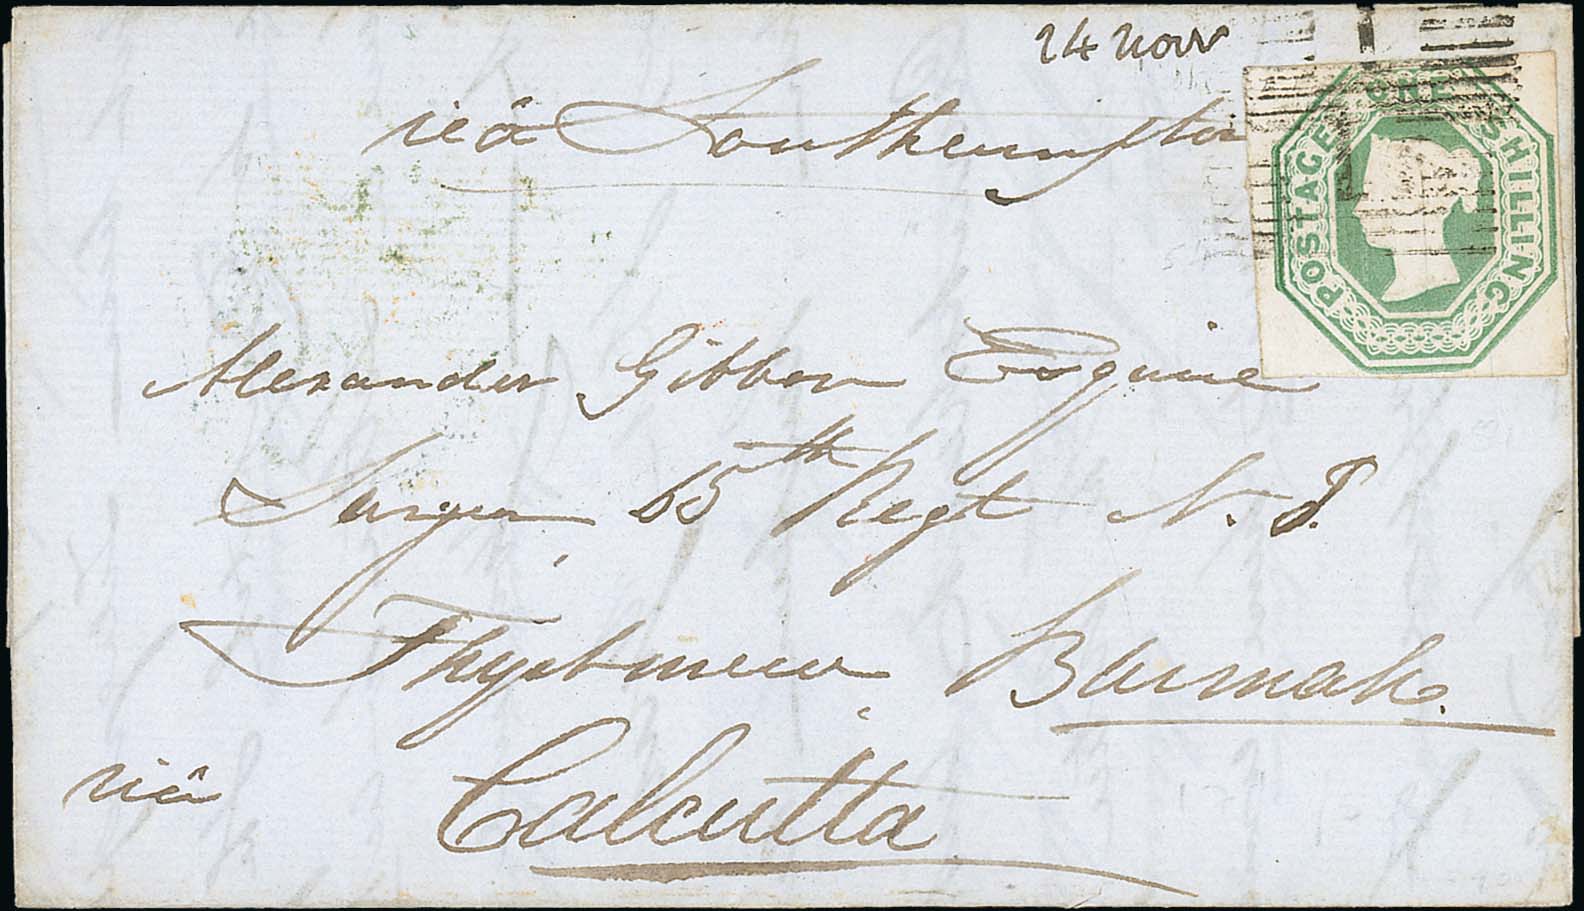 24 Novr
viâ Southampton
POSTAGE ONE SHILLING
Alexander Gibbon Esquire
Surgeon 65th Regt N. I.
Thyetmew Burmah.
viâ Calcutta